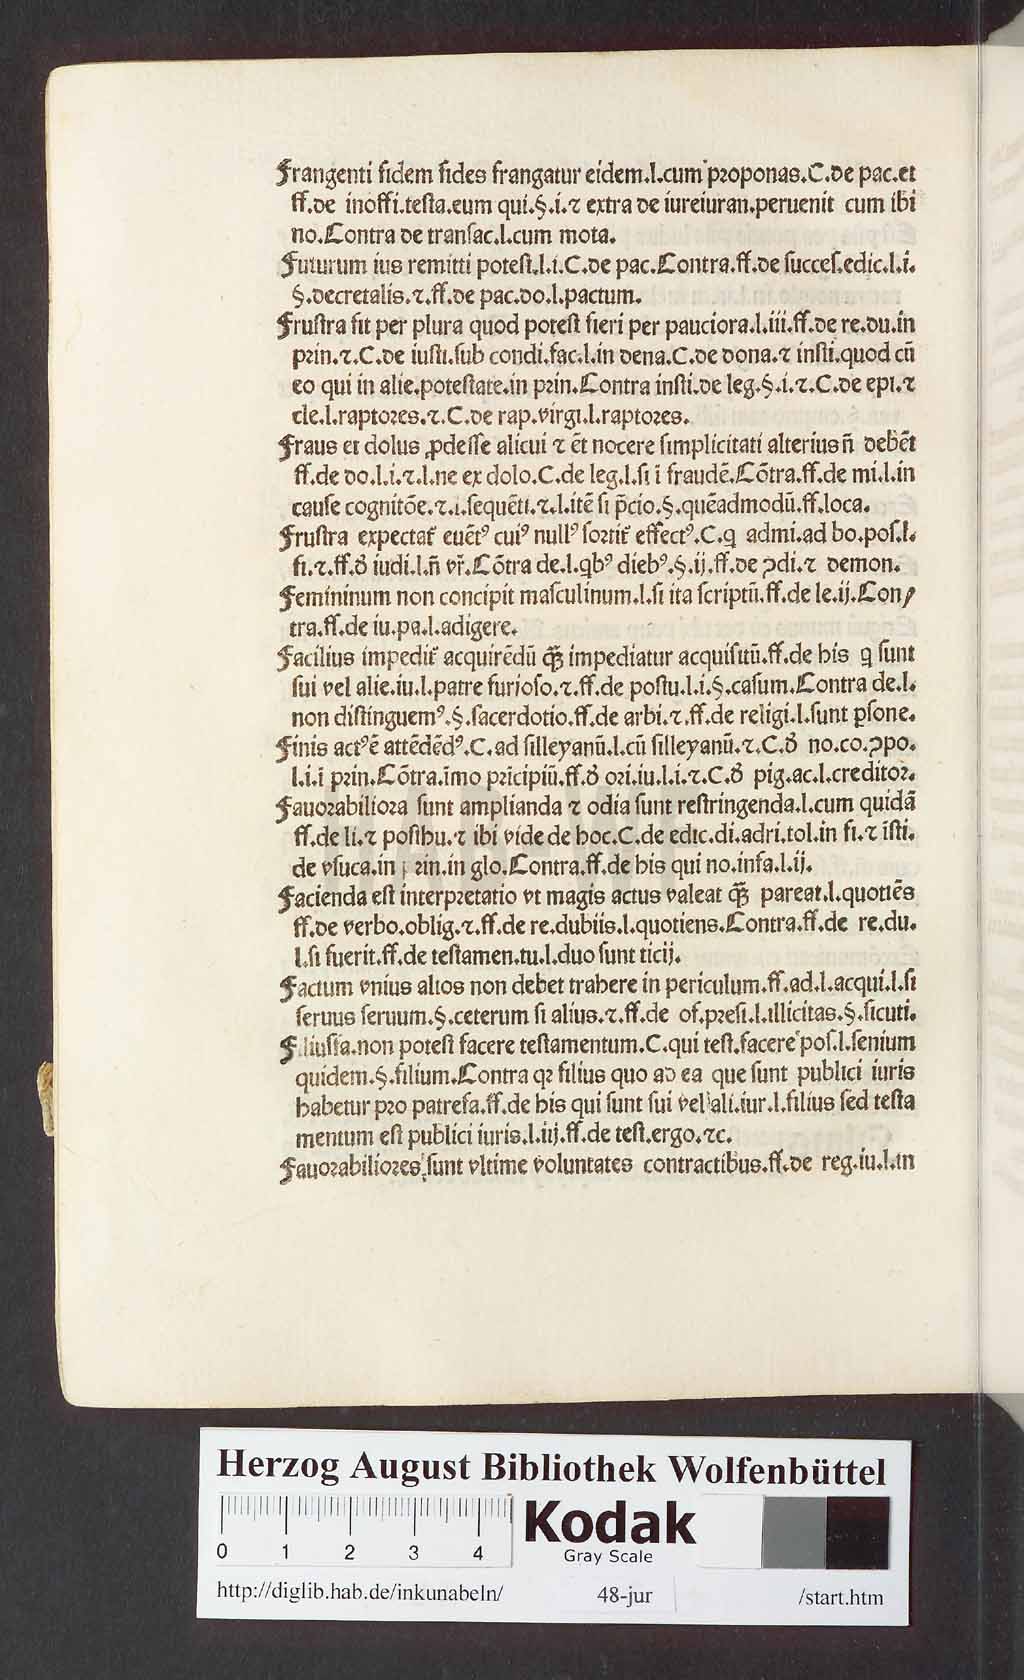 Frangenti fidem fides frangatur eidem.l.cum proponas.C.de pac.et
ff.de inoffi.testa.eum qui.§.i.⁊ extra de iureiuran.peruenit cum ibi
no.Contra de transac.l.cum mota.
Futurum ius remitti potest.l.i.C.de pac.Contra.ff.de succes.edic.l.i.
§.decretalis.⁊.ff.de pac.do.l.pactum.
Frustra fit per plura quod potest fieri per pauciora.l.iii.ff.de re.du.in
prin.⁊.C.de iusti.sub condi.fac.l.in dena.C.de dona.⁊ insti.quod cū
eo qui in alie.potestate.in prin.Contra insti.de leg.§.i.⁊.C.de epi.⁊
cle.l.raptores.⁊.C.de rap.virgi.l.raptores.
Fraus et dolus ꝓdesse alicui ⁊ ēt nocere simplicitati alterius n̄ debēt
ff.de do.l.i.⁊.l.ne ex dolo.C.de leg.l.si ī fraudē.Cōtra.ff.de mi.l.in
cause cognitōe.⁊.i.sequēti.⁊.l.itē si p̄cio.§.quēadmodū.ff.loca.
Frustra expectat᷑ euētꝰ cuiꝰ nullꝰ sortit᷑ effectꝰ.C.q admi.ad bo.pos.l.
fi.⁊.ff.ꝺ̉ iudi.l.n̄ vr̄.Cōtra de.l.qbꝰ diebꝰ.§.ij.ff.de ꝯdi.⁊ demon.
Femininum non concipit masculinum.l.si ita scriptū.ff.de le.ij.Con/
tra.ff.de iu.pa.l.adigere.
Facilius impedit᷑ acquirēdū ꝙ̄ impediatur acquisitū.ff.de his q sunt
sui vel alie.iu.l.patre furioso.⁊.ff.de postu.l.i.§.casum.Contra de.l.
non distinguemꝰ.§.sacerdotio.ff.de arbi.⁊.ff.de religi.l.sunt ꝑsone.
Finis actꝰ ē attēdēdꝰ.C.ad silleyanū.l.cū silleyanū.⁊.C.ꝺ̉ no.co.ꝯpo.
l.i.ī prin.Cōtra.īmo pricipiū.ff.ꝺ̉ ori.iu.l.i.⁊.C.ꝺ̉ pig.ac.l.creditor.
Fauorabiliora sunt amplianda ⁊ odia sunt restringenda.l.cum quidā
ff.de li.⁊ postbu.⁊ ibi vide de hoc.C.de edic.di.adri.tol.in fi.⁊ īsti.
de vsuca.in prin.in glo.Contra.ff.de his qui no.infa.l.ij.
Facienda est interpretatio vt magis actus valeat ꝙ̄ pareat.l.quotiēs
ff.de verbo.oblig.⁊.ff.de re.dubiis.l.quotiens.Contra.ff.de re.du.
l.si fuerit.ff.de testamen.tu.l.duo sunt ticij.
Factum vnius alios non debet trahere in periculum.ff.ad.l.acqui.l.si
seruus seruum.§.ceterum si alius.⁊.ff.de of.presi.l.illicitas.§.sicuti.
Filiusfa.non potest facere testamentum.C.qui test.facere pos.l.senium
quidem.§.filium.Contra qr filius quo ad ea que sunt publici iuris
habetur pro patrefa.ff.de his qui sunt sui vel ali.iur.l.filius sed testa
mentum est publici iuris.l.iij.ff.de test.ergo.⁊c.
Fauorabiliores sunt vltime voluntates contractibus.ff.de reg.iu.l.in
Herzog August Bibliothek Wolfenbüttel
0 1 2 3 4
Kodak
Gray Scale
http://diglib.hab.de/inkunabeln/ 48-jur /start.htm